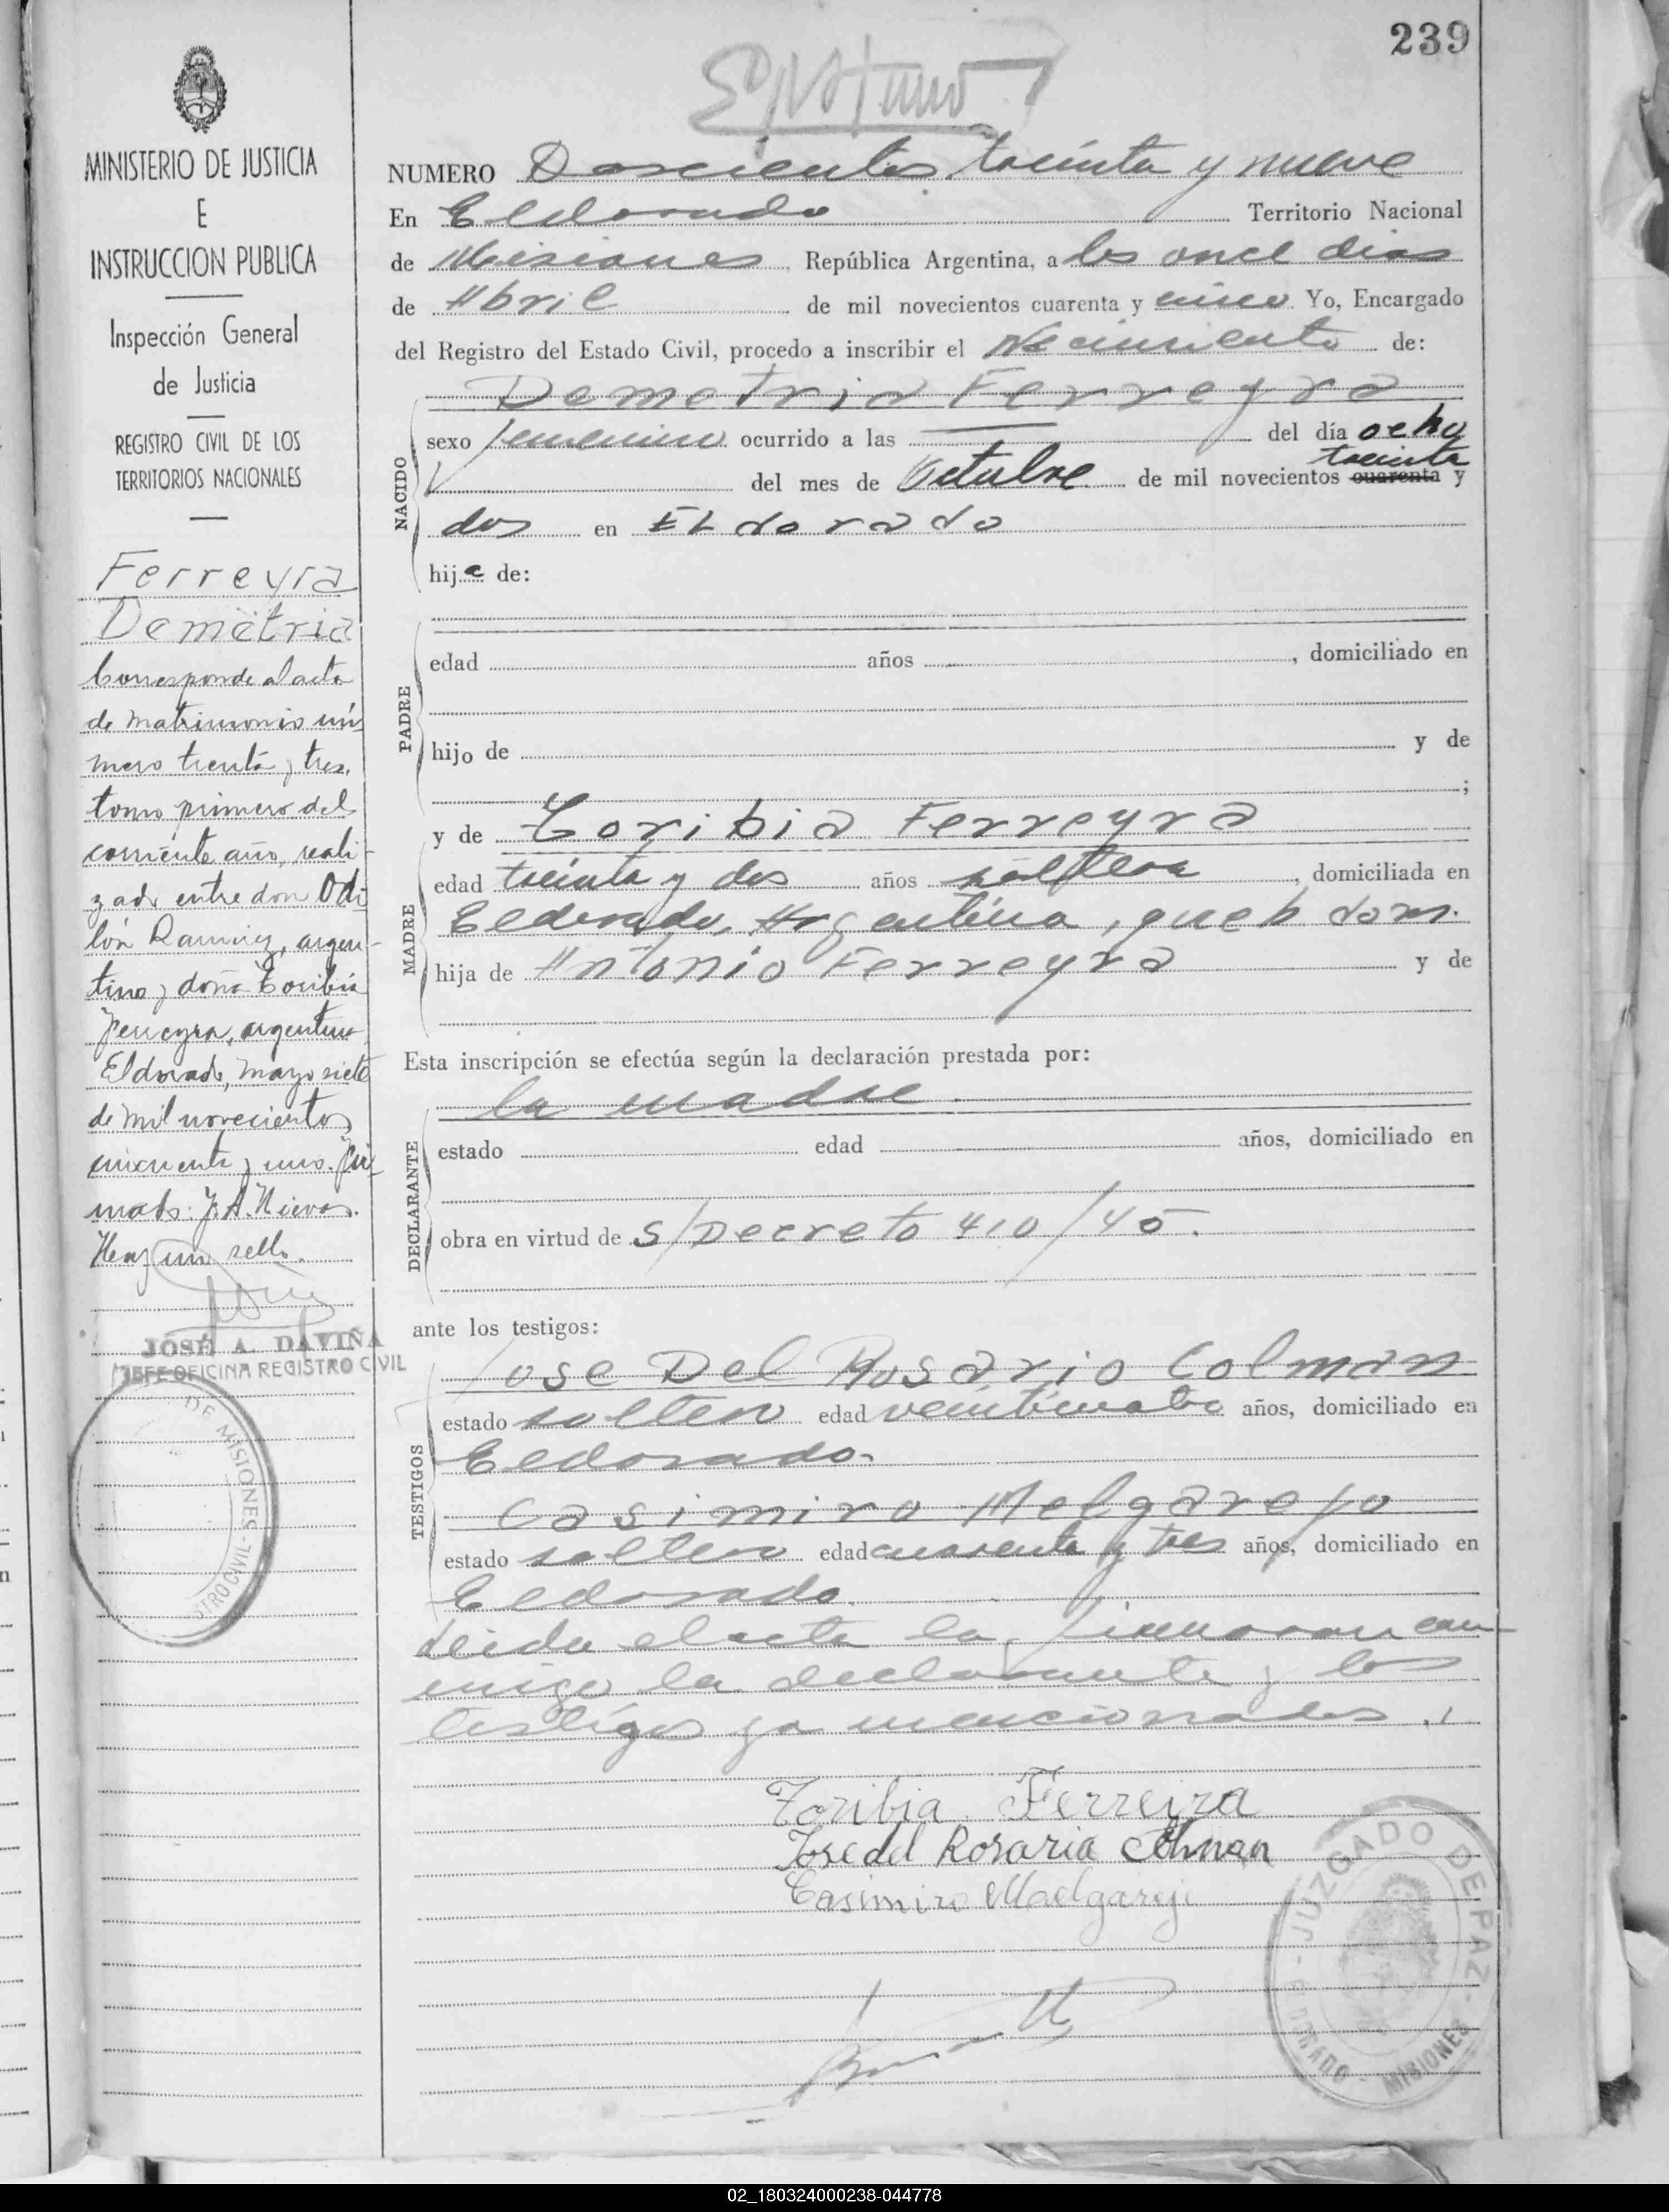 239
MINISTERIO DE JUSTICIA
E
INSTRUCCION PUBLICA
Inspección General
de Justicia
REGISTRO CIVIL DE LOS
TERRITORIOS NACIONALES
Ferreyra
Demetria
Corresponde al acta
de matrimonio nú
mero treinta y tres,
tomo primero del
corriente año, reali-
zado entre don Odi
lón Ramirez, argen-
tino y doña Toribia
Ferreyra, argentina
Eldorado, mayo siete
de mil novecientos
cincuenta y uno. Fir
mado: J. A. Nievas.
Hay un sello.
JOSÉ A. DAVIÑA
JEFE OFICINA REGISTRO CIVIL
DE MISIONES - STRO CIVIL
NUMERO Doscientos treinta y nueve
En Eldorado Territorio Nacional
de Misiones, República Argentina, a los once dias
de Abril de mil novecientos cuarenta y cinco Yo, Encargado
del Registro del Estado Civil, procedo a inscribir el Nacimiento de:
Demetria Ferreyra
NACIDO
sexo femenino ocurrido a las — del día ocho
del mes de Octubre de mil novecientos cuarenta treinta y
dos en ELdorado
hija de:
PADRE
edad años , domiciliado en
hijo de y de
;
MADRE
y de Toribia Ferreyra
edad treinta y dos años soltera, domiciliada en
Eldorado, Argentina, queh dom.
hija de Antonio Ferreyra y de
Esta inscripción se efectúa según la declaración prestada por:
la madre
DECLARANTE
estado edad años, domiciliado en
obra en virtud de S/Decreto 410/45.
ante los testigos:
TESTIGOS
Jose Del Rosario Colman
estado soltero edad veinticuatro años, domiciliado en
Eldorado.
Casimiro Melgarejo
estado soltero edad cuarenta y tres años, domiciliado en
Eldorado.
Leida el acta la firmaron con
migo la declarante y los
testigos ya mencionados.
Toribia Ferreira
Jose del Rosaria Colman
Casimiro Malgareji
JUZGADO DE PAZ - ELDORADO - MISIONES
02_180324000238-044778